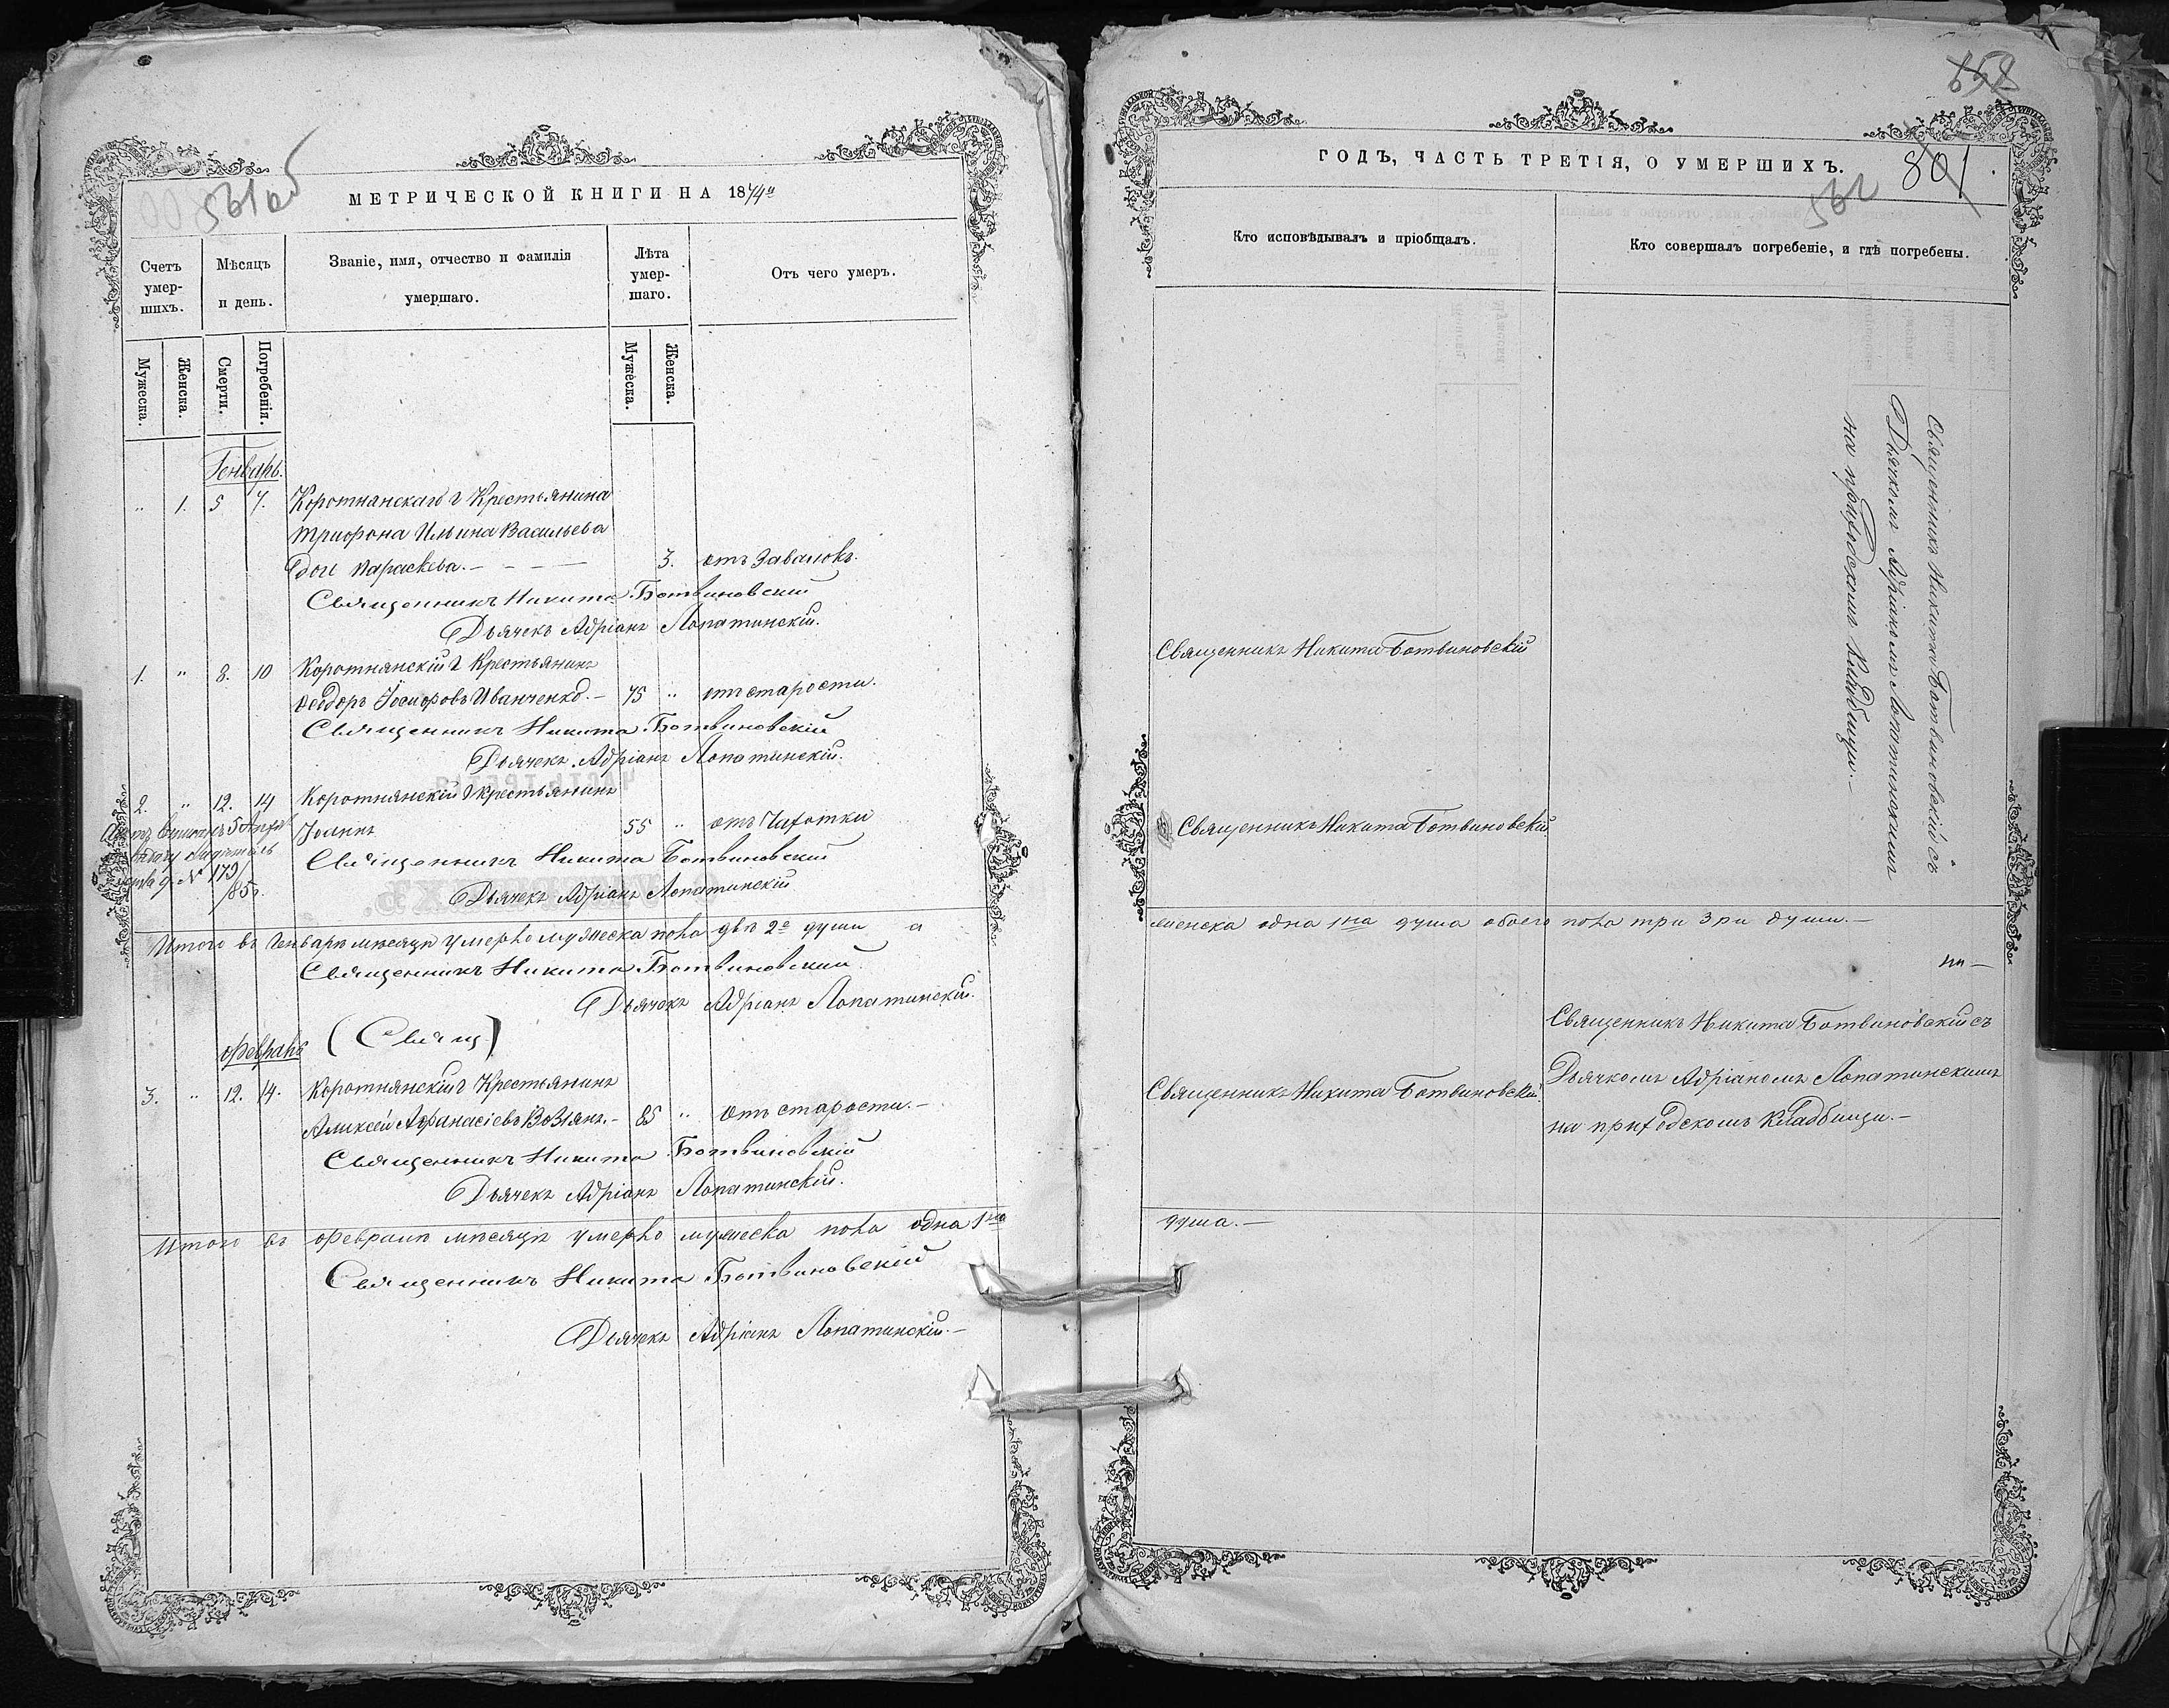 561об
МЕТРИЧЕСКОЙ КНИГИ НА 1874й
Счетъ умер-шихъ.
Мѣсяцъ и день.
Званіе, имя, отчество и фамилія умершаго.
Лѣта умер-шаго.
Отъ чего умеръ.
Мужеска.
Женска.
Смерти.
Погребенія.
Мужеска.
Женска.
Генварь.
" 1. 5 7. Коротнянскаго Крестьянина
Трифона Ильина Васильева
дочь Параскева. – – – 3. отъ Завалокъ.
Священникъ Никита Ботвиновскій
Дьячекъ Адріанъ Лопатинскій.
1. " 8. 10 Коротнянскій Крестьянинъ
Феодоръ Іосифовъ Иванченко. – 75 " отъ старости.
Священникъ Никита Ботвиновскій
Дьячекъ Адріанъ Лопатинскій.
2. " 12. 14 Коротнянскій Крестьянинъ
Іоаннъ 55 " отъ Чахотки
№ 179/85г.
Священникъ Никита Ботвиновскій
Дьячекъ Адріанъ Лопатинскій
Итого въ Генварѣ мѣсяцѣ умерло мужеска пола двѣ 2е души а
Священникъ Никита Ботвиновскій.
Дьячекъ Адріанъ Лопатинскій.
Февраль (Свящ)
3. " 12. 14. Коротнянскій Крестьянинъ
Алексѣй Афанасіевъ Возіянъ. – 85 " отъ старости. –
Священникъ Никита Ботвиновскій
Дьячекъ Адріанъ Лопатинскій.
Итого въ Февралѣ мѣсяцѣ умерло мужеска пола одна 1на
Священникъ Никита Ботвиновскій
Дьячекъ Адріанъ Лопатинскій. –
558
ГОДЪ, ЧАСТЬ ТРЕТІЯ, О УМЕРШИХЪ.
801
562
Кто исповѣдывалъ и пріобщалъ.
Кто совершалъ погребеніе, и гдѣ погребены.
Священникъ Никита Ботвиновскій съ
Дьячкомъ Адріаномъ Лопатинскимъ
на приходскомъ кладбищи. –
Священникъ Никита Ботвиновскій
Священникъ Никита Ботвиновскій.
женска одна 1на душа обоего пола три 3ри души. –
Священникъ Никита Ботвиновскій съ
Священникъ Никита Ботвиновскій.
Дьячкомъ Адріаномъ Лопатинскимъ
на приходскомъ Кладбищи. –
душа. –